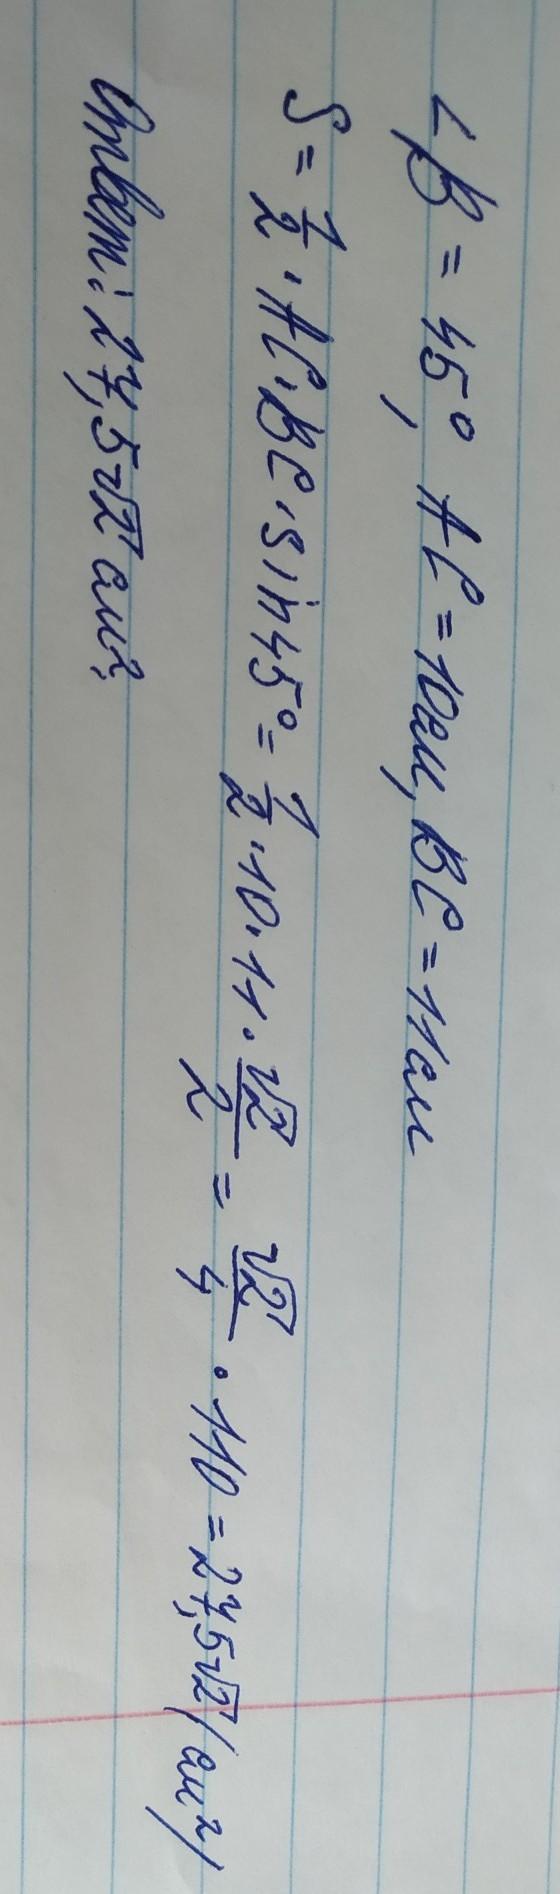 ∠B = 45°, AC = 10см, BC = 11см
S = 1/2 · AC · BC · sin45° = 1/2 · 10 · 11 · √2/2 = √2/4 · 110 = 27,5√2 (см²)
Ответ: 27,5√2 см².